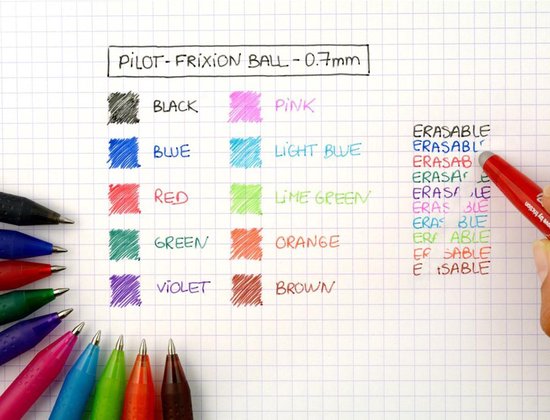 PILOT-FRIXION BALL-0.7mm
BLACK
BLUE
RED
GREEN
VIOLET
PINK
LIGHT BLUE
LIME GREEN
ORANGE
BROWN
ERASABLE
ERASABL
ERASAB
ERASAB
ERASA LE
ERAS BLE
ERAS BLE
ERA ABLE
ER SABLE
E ISABLE